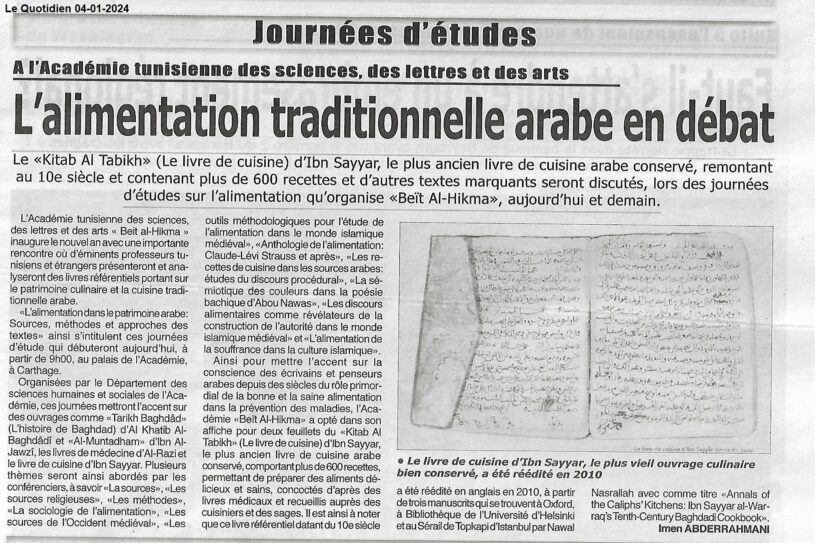 Le Quotidien 04-01-2024
Journées d'études
A l'Académie tunisienne des sciences, des lettres et des arts
L'alimentation traditionnelle arabe en débat
Le «Kitab Al Tabikh» (Le livre de cuisine) d'Ibn Sayyar, le plus ancien livre de cuisine arabe conservé, remontant
au 10e siècle et contenant plus de 600 recettes et d'autres textes marquants seront discutés, lors des journées
d'études sur l'alimentation qu'organise «Beït Al-Hikma», aujourd'hui et demain.
L'Académie tunisienne des sciences,
des lettres et des arts « Beit al-Hikma »
inaugure le nouvel an avec une importante
rencontre où d'éminents professeurs tu-
nisiens et étrangers présenteront et ana-
lyseront des livres référentiels portant sur
le patrimoine culinaire et la cuisine tradi-
tionnelle arabe.
«L'alimentation dans le patrimoine arabe:
Sources, méthodes et approches des
textes» ainsi s'intitulent ces journées
d'étude qui débuteront aujourd'hui, à
partir de 9h00, au palais de l'Académie,
à Carthage.
Organisées par le Département des
sciences humaines et sociales de l'Aca-
démie, ces journées mettront l'accent sur
des ouvrages comme «Tarikh Baghdâd»
(L'histoire de Baghdad) d'Al Khatib Al-
Baghdâdî et «Al-Muntadham» d'Ibn Al-
Jawzî, les livres de médecine d'Al-Razi et
le livre de cuisine d'Ibn Sayyar. Plusieurs
thèmes seront ainsi abordés par les
conférenciers, à savoir «La sources», «Les
sources religieuses», «Les méthodes»,
«La sociologie de l'alimentation», «Les
sources de l'Occident médiéval», «Les
outils méthodologiques pour l'étude de
l'alimentation dans le monde islamique
médiéval», «Anthologie de l'alimentation:
Claude-Lévi Strauss et après», «Les re-
cettes de cuisine dans les sources arabes:
études du discours procédural», «La sé-
miotique des couleurs dans la poésie
bachique d'Abou Nawas», «Les discours
alimentaires comme révélateurs de la
construction de l'autorité dans le monde
islamique médiéval» et «L'alimentation de
la souffrance dans la culture islamique».
Ainsi pour mettre l'accent sur la
conscience des écrivains et penseurs
arabes depuis des siècles du rôle primor-
dial de la bonne et la saine alimentation
dans la prévention des maladies, l'Aca-
démie «Beït Al-Hikma» a opté dans son
affiche pour deux feuillets du «Kitab Al
Tabikh» (Le livre de cuisine) d'Ibn Sayyar,
le plus ancien livre de cuisine arabe
conservé, comportant plus de 600 recettes,
permettant de préparer des aliments dé-
licieux et sains, concoctés d'après des
livres médicaux et recueillis auprès des
cuisiniers et des sages. Il est ainsi à noter
que ce livre référentiel datant du 10e siècle
Le livre de cuisine d'Ibn Sayyâr
• Le livre de cuisine d'Ibn Sayyar, le plus vieil ouvrage culinaire
bien conservé, a été réédité en 2010
a été réédité en anglais en 2010, à partir
de trois manuscrits qui se trouvent à Oxford,
à Bibliothèque de l'Université d'Helsinki
et au Sérail de Topkapi d'Istanbul par Nawal
Nasrallah avec comme titre «Annals of
the Caliphs' Kitchens: Ibn Sayyar al-War-
raq's Tenth-Century Baghdadi Cookbook».
Imen ABDERRAHMANI